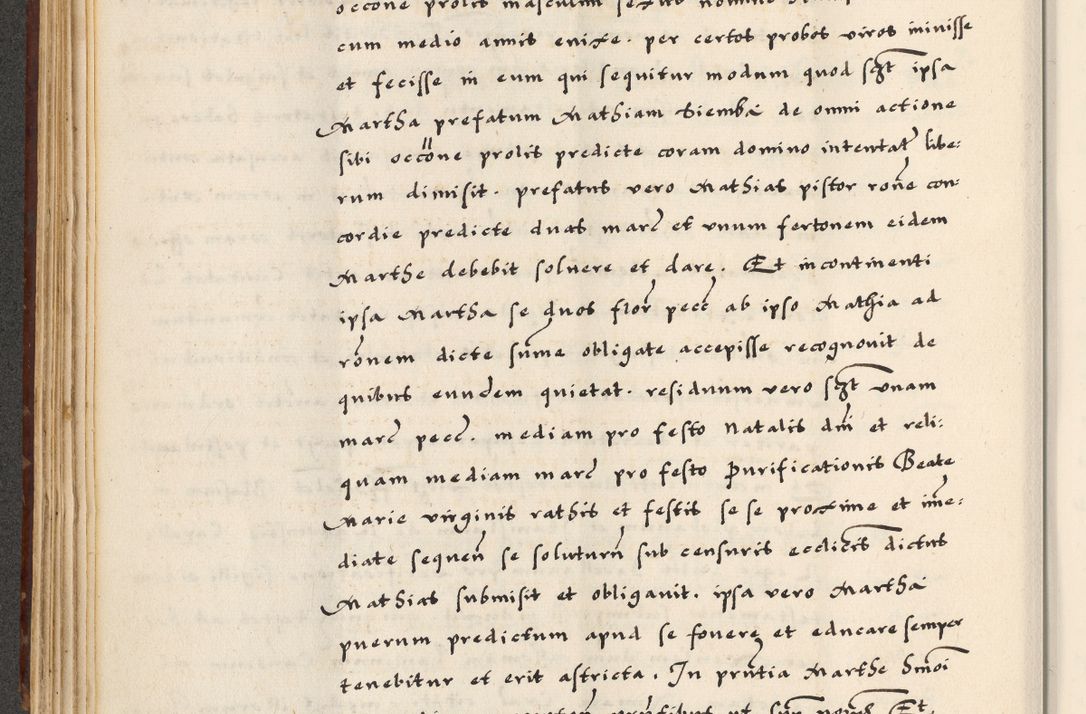 occone prolis masculini sexus nomine
cum medio annis enixe. per certos probos viros inivisse
et fecisse in eum qui sequitur modum quod sczt ipsa
Martha prefatum Mathiam Siemba de omni actione
sibi occone prolis predicte coram domino intentat libe:
rum dimisit. prefatus vero Mathias pistor rone con-
cordie predicte duas marc et vnum fertonem eidem
Marthe debebit soluere et dare. Et incontinenti
ipsa Martha se duos flor pecc ab ipso Mathia ad
ronem dicte sume obligate accepisse recognouit de
quibus eundem quietat. residuum vero sczt vnam
marc pecc. mediam pro festo Natalis dni et reli:
quam mediam marc pro festo Purificationis Beate
Marie virginis rathis et festis se se proxime et ime:
diate sequen se soluturu sub censuris ecclicis dictus
Mathias submisit et obligauit. ipsa vero Martha
puerum predictum apud se fouere et educare semper
tenebitur et erit astricta. In prntia Marthe Smoi